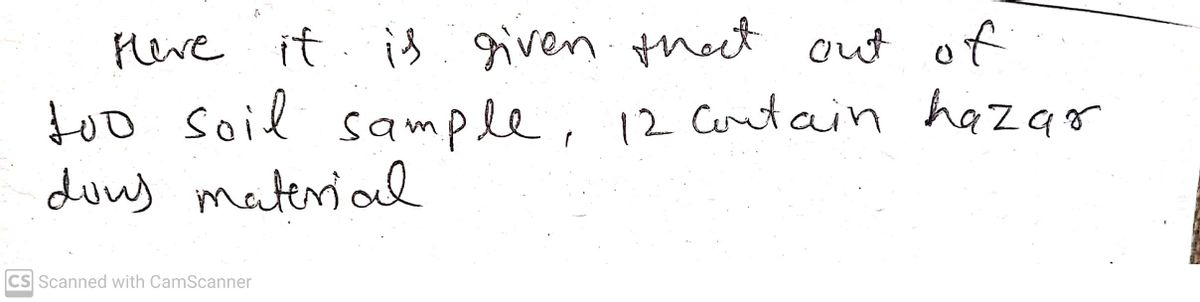 Here it is given that out of
100 soil sample, 12 contain hazar
dous material
CS Scanned with CamScanner